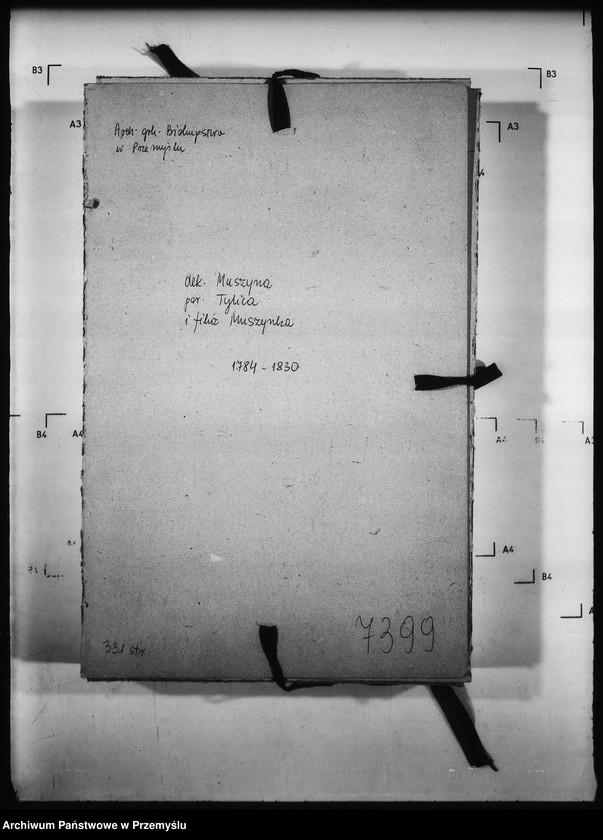 B3
B3
A3
A3
Arch. gr.k. Biskupstwa
w Przemyślu
dek. Muszyna
par. Tylicz
i filia Muszynka
1784 - 1830
B4
A4
A4
B4
A3
A4
A4
B4
7399
331 str.
Archiwum Państwowe w Przemyślu